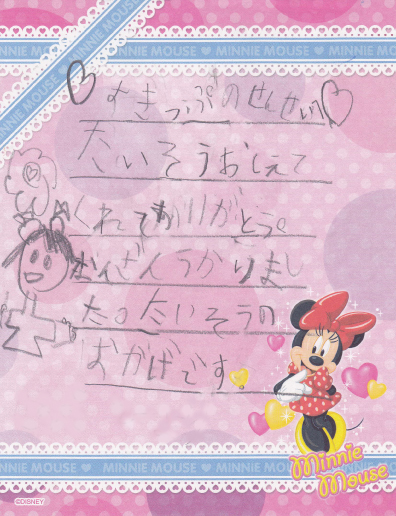 MINNIE MOUSE ♥ MINNIE MOUSE ♥ MINNIE MOUSE
MINNIE MOUSE ♥ MINNIE MOUSE
♡すきっぷのせんせいへ♡
たいそうおしえて
くれてありがとう。
うかりまし
た。たいそうの
おかげです。
Minnie
Mouse
MINNIE MOUSE ♥ MINNIE MOUSE ♥ MINNIE MOUSE
©DISNEY